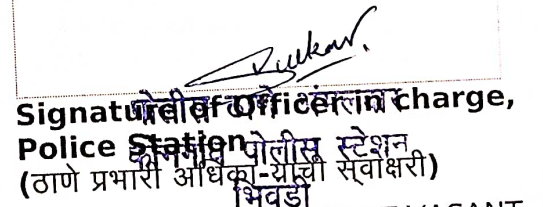 Signature of Officer in charge,
Police Station
पोलीस स्टेशन
(ठाणे प्रभारी अधिका-याची स्वाक्षरी)
भिवंडी
VASANT